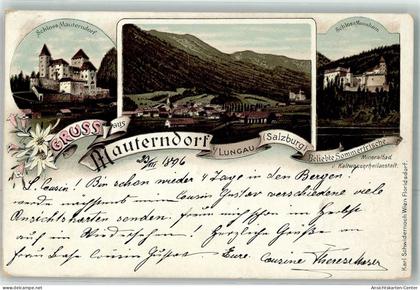 Schloss Mauterndorf
Schloss Moosham
GRUSS aus
Mauterndorf
LUNGAU (Salzburg)
Beliebte Sommerfrische
Mineralbad
Kaltwasserheilanstalt.
1896
L. Cousin! Bin schon wieder 4 Tage in den Bergen!
und Cousin Gustav verschiedene viele
Ansichtskarten senden, freue mich im Herbst
auf ein Wiedersehen! Herzliche Grüße an
Eure Cousine Therese
Karl Schwidernoch, Wien, Floridsdorf.
Ansichtskarten-Center